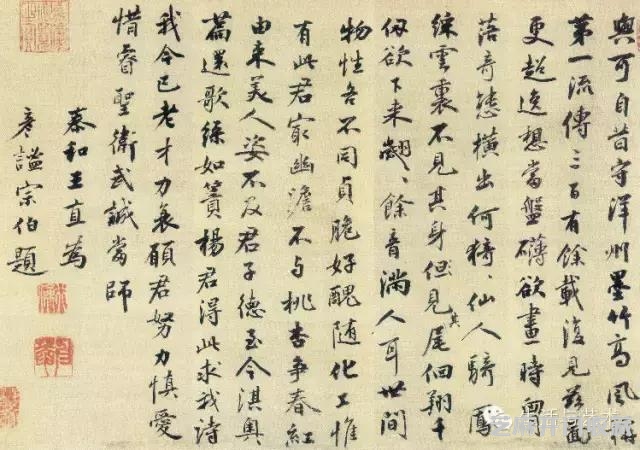 與可自昔守洋州墨竹高風稱
第一流傳三百有餘載復見茲觀
更超逸想當盤礴欲畫時
落奇態橫出何猗々仙人騎鳳
綠雲裏不見其身但見其尾徊翔千
仞欲下来翽々餘音滿人耳世間
物性各不同貞脆好醜随化工惟
有此君㝡幽澹不与桃杏争春紅
由来美人姿不及君子德至今淇奥
篇還歌綠如簀楊君得此求我詩
我今已老才力衰願君努力慎愛
惜睿聖衛武誠當師
泰和王直為
彥謐宗伯題